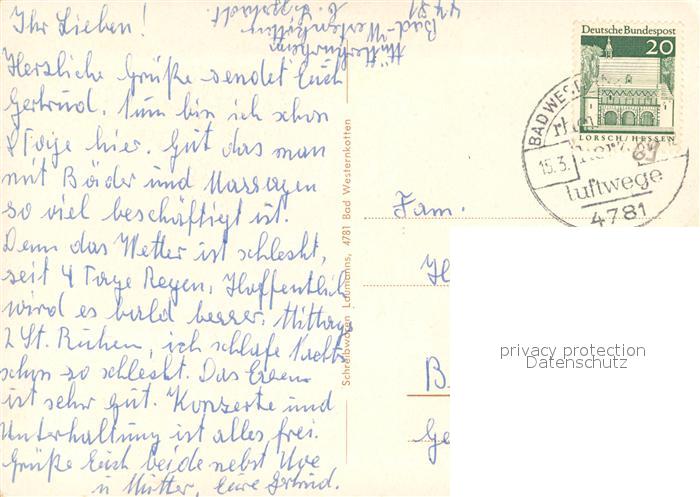 Ihr Lieben!
Herzliche Grüße sendet Euch
Gertrud. Nun bin ich schon
8 Tage hier. Gut das man
mit Bäder und Massagen
so viel beschäftigt ist.
Denn das Wetter ist schlecht,
seit 4 Tage Regen. Hoffentlich
wird es bald besser. Mittags
2 St. Ruhen, ich schlafe Nachts
schon so schlecht. Das Essen
ist sehr gut. Konzerte und
Unterhaltung ist alles frei.
Grüße Euch beide nebst Uwe
u Mutter, Eure Gertrud.
4781
Bad-Westernkotten
Schreibwaren Laumanns, 4781 Bad Westernkotten
Deutsche Bundespost
20
LORSCH/HESSEN
BAD WESTE
15.3.
luftwege
4781
Fam.
H
B
Ge
privacy protection
Datenschutz